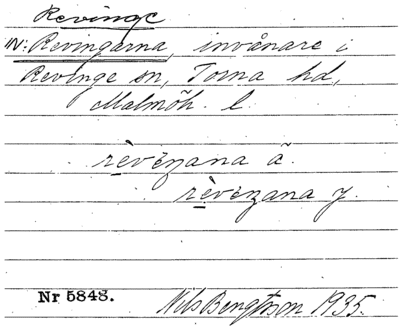 Revinge
IN: Revingarna, invånare i
Revinge sn, Torna hd,
Malmöh. l.
rèveŋana ä.
rèveŋana y.
Nr 5848. Nils Bengtsson 1935.